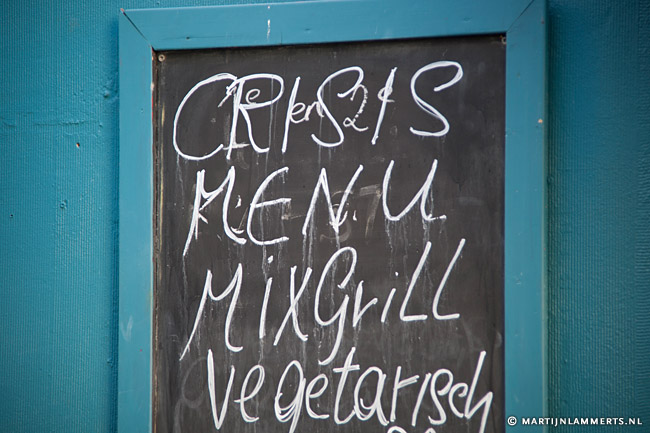 CRISIS
M.E.N.U.
MIXGrill
vegetarisch
© MARTIJNLAMMERTS.NL